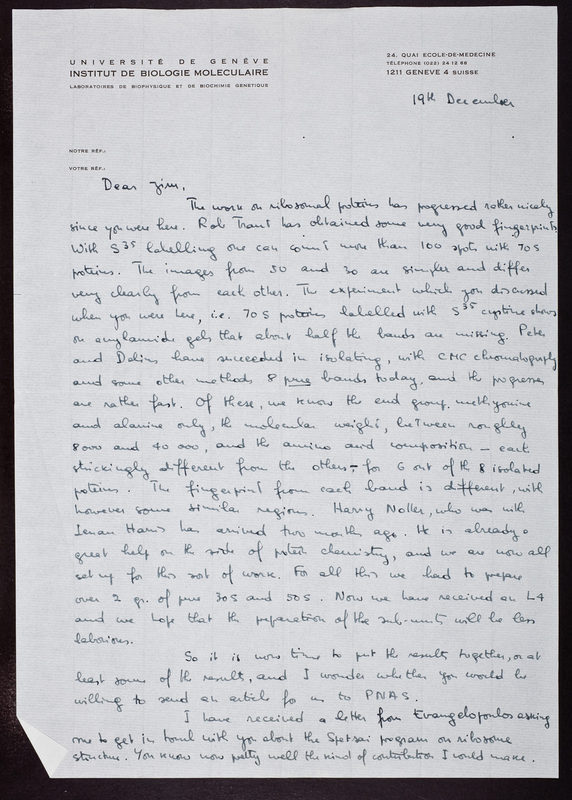 UNIVERSITÉ DE GENÈVE
INSTITUT DE BIOLOGIE MOLECULAIRE
LABORATOIRES DE BIOPHYSIQUE ET DE BIOCHIMIE GENETIQUE
24, QUAI ECOLE-DE-MEDECINE
TÉLÉPHONE (022) 24 12 68
1211 GENEVE 4 SUISSE
19th December
NOTRE RÉF.:
VOTRE RÉF.:
Dear Jim,
The work on ribosomal proteins has progressed rather nicely
since you were here. Rob Traut has obtained some very good fingerprints
With S35 labelling one can count more than 100 spots with 70S
proteins. The images from 50 and 30 are simpler and differ
very clearly from each other. The experiment which you discussed
when you were here, i.e. 70S proteins labelled with S35 cystine shows
on acrylamide gels that about half the bands are missing. Peter
and Delius have succeeded in isolating, with CMC chromatography
and some other methods 8 pure bands today, and the progresses
are rather fast. Of these, we know the end group, methyonine
and alanine only, the molecular weight, between roughley
8000 and 40 000, and the amino acid composition – each
strickingly different from the others – for 6 out of the 8 isolated
proteins. The fingerprint from each band is different, with
however some similar regions. Harry Noller, who was with
Ieuan Harris has arrived two months ago. He is already a
great help on the side of protein chemistry, and we are now all
set up for this sort of work. For all this we had to prepare
over 2 gr. of pure 30S and 50S. Now we have received an L4
and we hope that the preparation of the sub-units will be less
laborious.
So it is now time to put the results together, or at
least some of the result, and I wonder whether you would be
willing to send an article for us to PNAS.
I have received a letter from Evangelopoulos asking
me to get in touch with you about the Spetsai program on ribosome
structure. You know now pretty well the kind of contribution I would make.